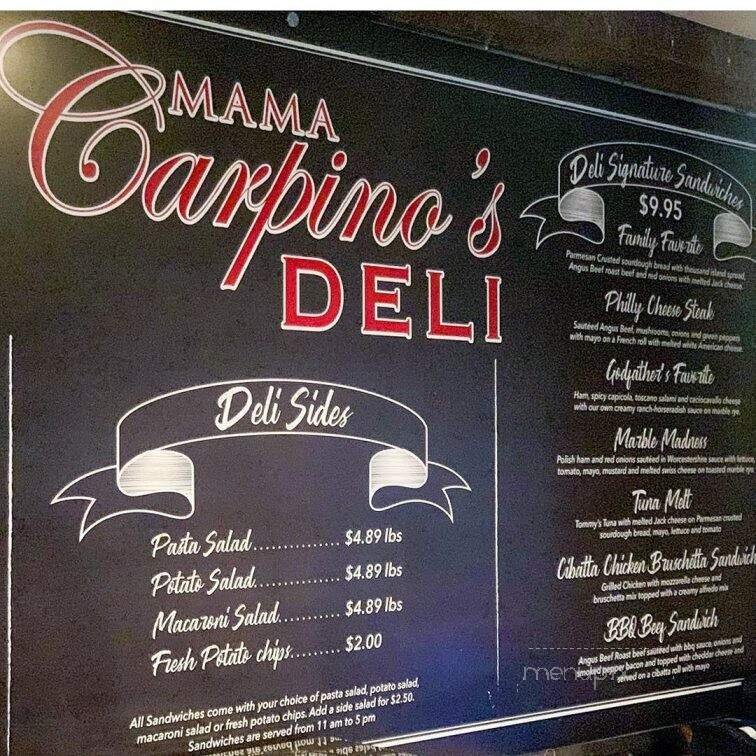 MAMA
Carpino's
DELI
Deli Sides
Pasta Salad.............. $4.89 lbs
Potato Salad.............. $4.89 lbs
Macaroni Salad........... $4.89 lbs
Fresh Potato chips......... $2.00
All Sandwiches come with your choice of pasta salad, potato salad,
macaroni salad or fresh potato chips. Add a side salad for $2.50.
Sandwiches are served from 11 am to 5 pm
Deli Signature Sandwiches
$9.95
Family Favorite
Parmesan Crusted sourdough bread with thousand island spread,
Angus Beef roast beef and red onions with melted Jack cheese
Philly Cheese Steak
Sautéed Angus Beef, mushrooms, onions and green peppers
with mayo on a French roll with melted white American cheese
Godfather's Favorite
Ham, spicy capicola, toscano salami and caciocavallo cheese
with our own creamy ranch-horseradish sauce on marble rye.
Marble Madness
Polish ham and red onions sautéed in Worcestershire sauce with lettuce,
tomato, mayo, mustard and melted swiss cheese on toasted marble rye
Tuna Melt
Tommy's Tuna with melted Jack cheese on Parmesan crusted
sourdough bread, mayo, lettuce and tomato
Cibatta Chicken Bruschetta Sandwich
Grilled Chicken with mozzorella cheese and
bruschetta mix topped with a creamy alfredo mix
BBQ Beef Sandwich
Angus Beef Roast beef sautéed with bbq sauce, onions and
smoked pepper bacon and topped with cheddar cheese and
served on a cibatta roll with mayo